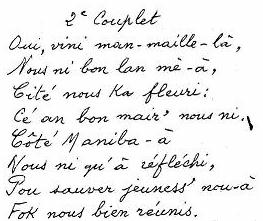 2e Couplet
Oui, vini man-maille-là,
Nous ni bon lan mè-à,
Cité nous Ka fleuri:
Cé an bon mair' nous ni.
Côté Maniba-à
Nous ni qu'à réfléchi,
Pou sauver jeuness' nou-à
Fok nous bien réunis.